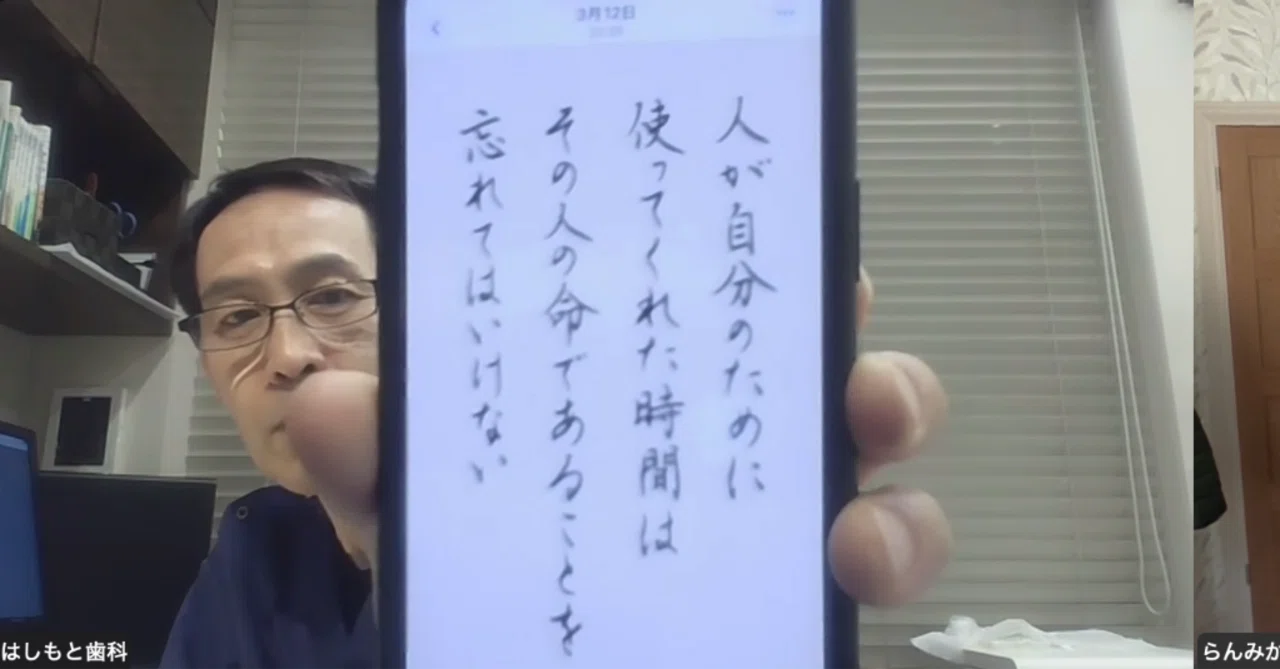 3月12日
人が自分のために
使ってくれた時間は
その人の命であることを
忘れてはいけない
はしもと歯科
らんみか